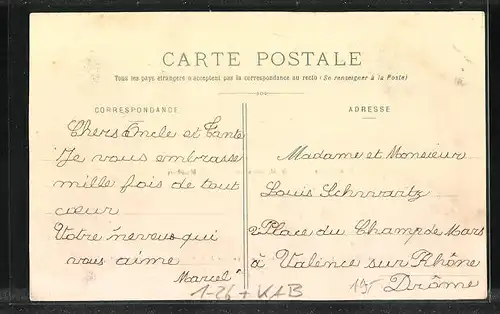 CARTE POSTALE
Tous les pays étrangers n'acceptent pas la correspondance au recto (Se renseigner à la Poste)
CORRESPONDANCE
Chers Oncle et Tante
Je vous embrasse
mille fois de tout
cœur
Votre neveu qui
vous aime
Marcel
ADRESSE
Madame et Monsieur
Louis Schwartz
2 Place du Champ de Mars
à Valence sur Rhône
Drôme
1-26 + KAB